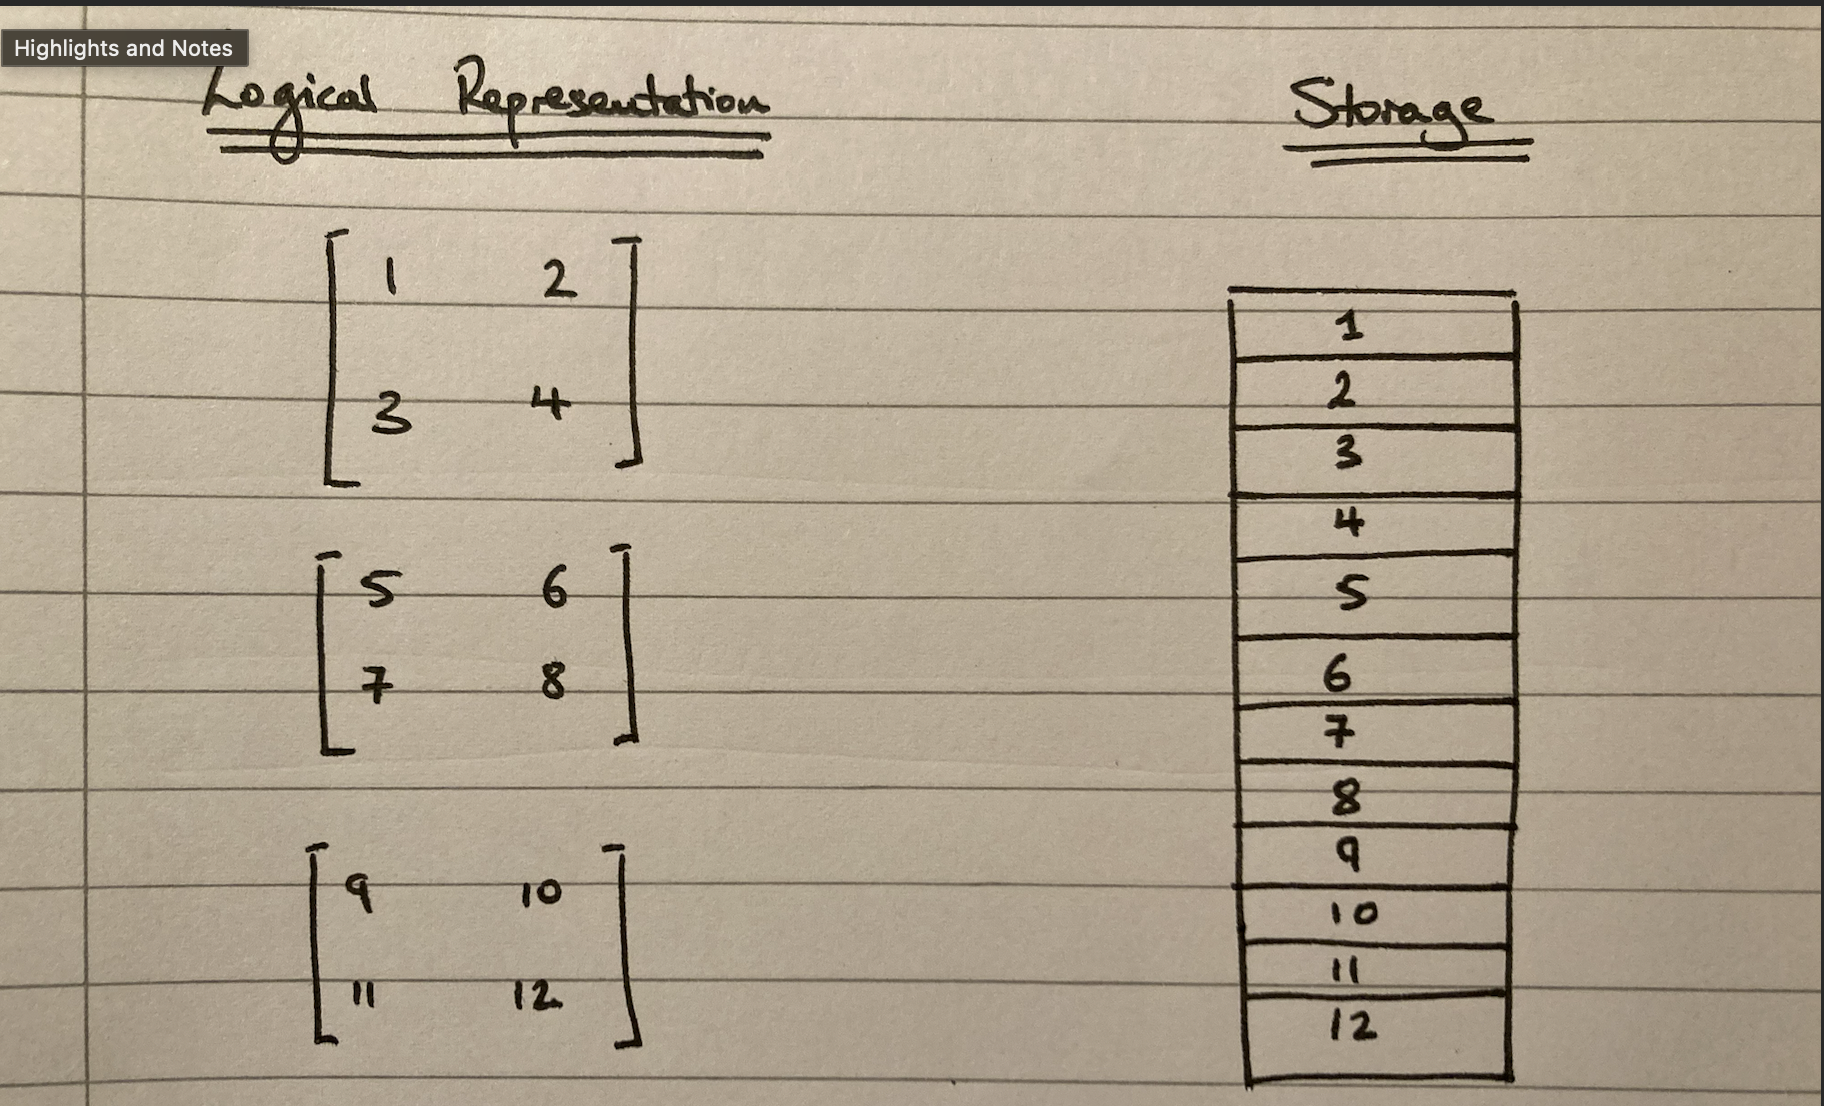 Highlights and Notes
Logical Representation
Storage
1 2
3 4
5 6
7 8
9 10
11 12
1
2
3
4
5
6
7
8
9
10
11
12